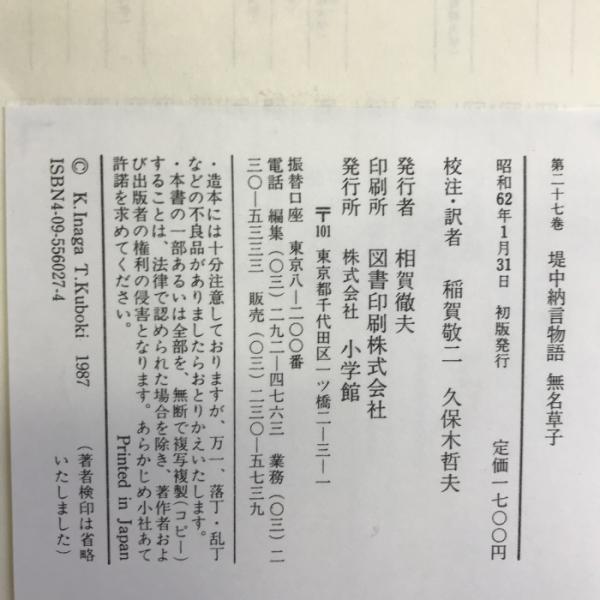 第二十七巻 堤中納言物語 無名草子
昭和62年1月31日 初版発行 定価一七〇〇円
校注・訳者 稲賀敬二 久保木哲夫
発行者 相賀徹夫
印刷所 図書印刷株式会社
発行所 株式会社 小学館
〒101 東京都千代田区一ツ橋二―三―一
振替口座 東京八―二〇〇番
電話 編集(〇三)二九二―四七六三 業務(〇三)二
三〇―五三三三 販売(〇三)二三〇―五七三九
・造本には十分注意しておりますが、万一、落丁・乱丁
などの不良品がありましたらおとりかえいたします。
・本書の一部あるいは全部を、無断で複写複製(コピー)
することは、法律で認められた場合を除き、著作者およ
び出版者の権利の侵害となります。あらかじめ小社あて
許諾を求めてください。 Printed in Japan
© K.Inaga T.Kuboki 1987 (著者検印は省略
いたしました)
ISBN4-09-556027-4